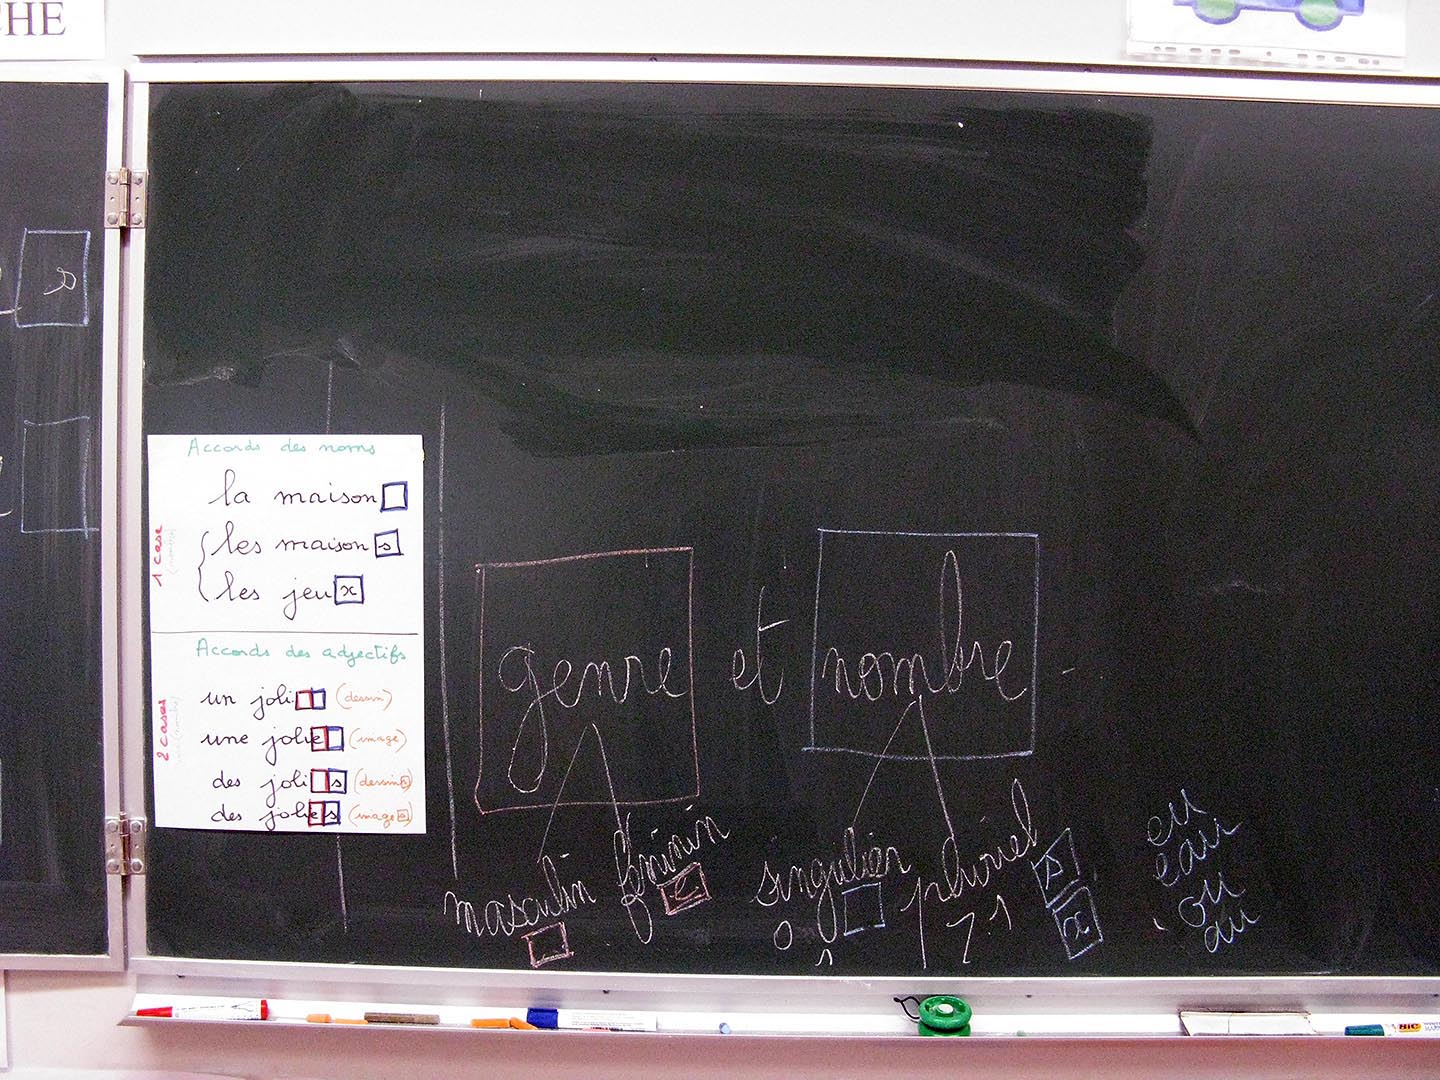 CHE
Accords des noms
la maison
les maisons
les jeux
1 case
Accords des adjectifs
un joli (dessin)
une jolie (image)
des jolis (dessins)
des jolies (images)
2 cases
genre et nombre
masculin féminin e
singulier pluriel s x
0 1 7.1
eu
eau
ou
au
BIC